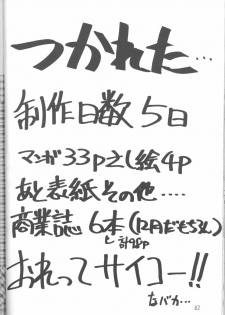 つかれた…
制作日数 5日
マンガ33pさし絵4p
あと表紙その他‥‥
商業誌 6本(12月だもちろん)
と計98p
おれってサイコー!!
なバカ…